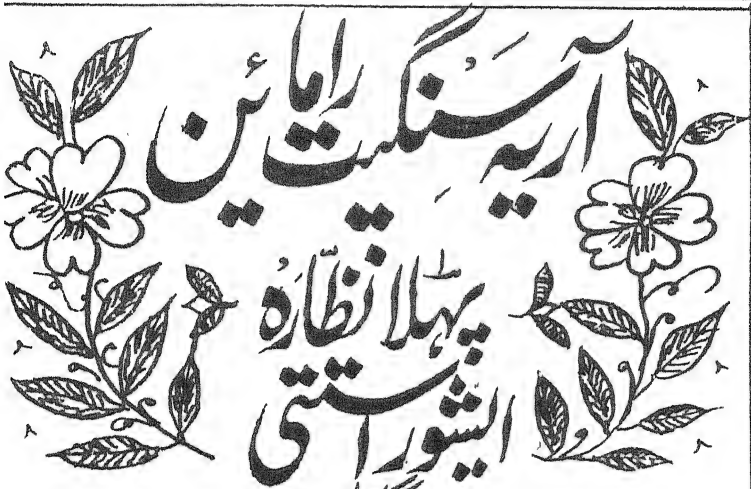 آریہ سنگیت رامائن
پہلا نظّارہ
ایشور استتی